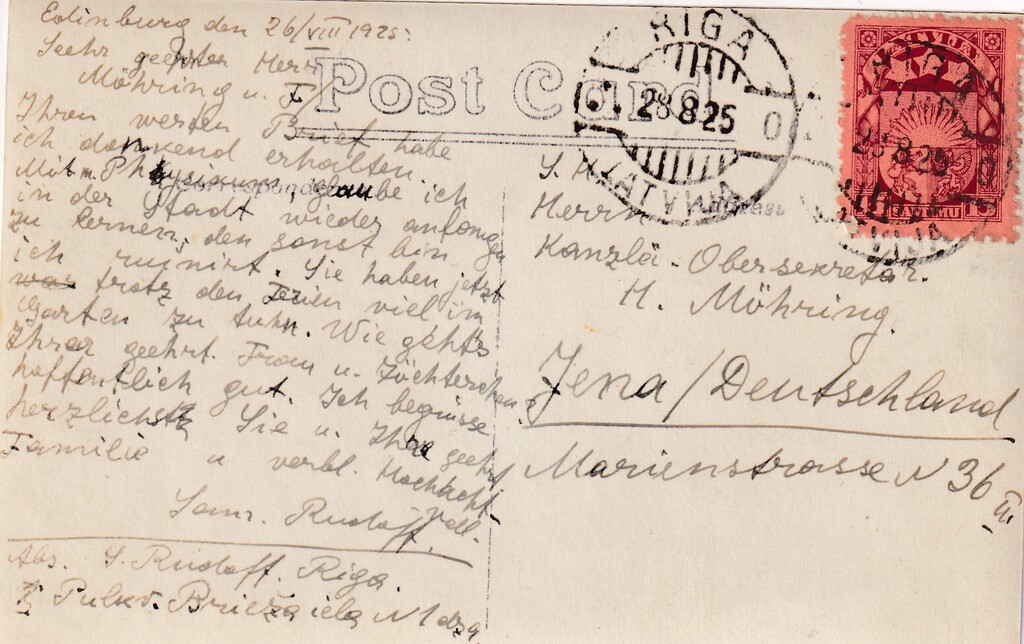 Edinburg den 26/VIII 1925.
Seehr geehrter Herr
Möhring u. F
Post Card
Ihren werten Brief habe
ich dankend erhalten.
Mit m. Physikum, glaube ich
in der Stadt wieder anfangen
zu lernen, den sonst bin
ich ruinirt. Sie haben jetzt
trotz den Ferien viel im
Garten zu tuhn. Wie geht's
Ihrer geehrt. Frau u. Töchterchen?
hoffentlich gut. Ich begrüsse
herzlichst Sie u. Ihre geehrt
Familie u verbl. Hochacht-
voll.
Sam. Rudoff.
Abs. S. Rudoff. Riga.
Pulkv. Brieža iela N 1 dz 9
RIGA
28.8.25
LATVIJA
LATVIJA
RIGA
28.8.25
LATVIJA
15 SANTIMU 15
S. H.
Herrn
Kanzlä-Obersekretär.
H. Möhring.
Jena/Deutschland
Marienstrasse N 36 III